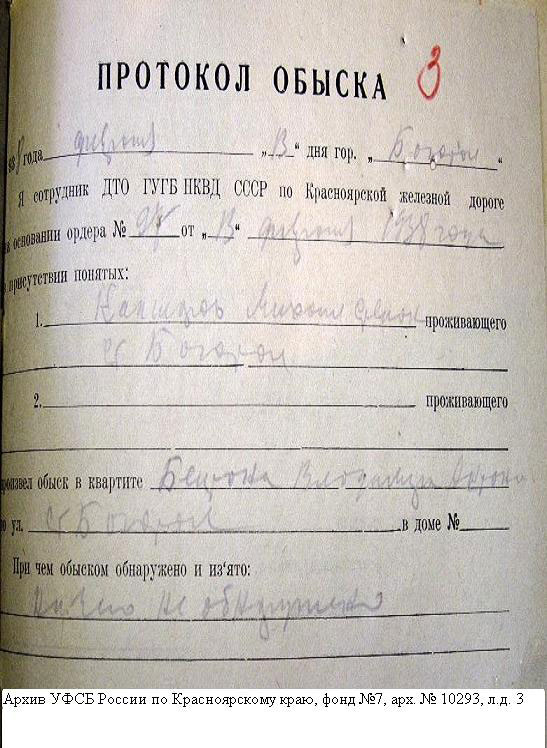 ПРОТОКОЛ ОБЫСКА 3
года февраля „13“ дня гор. „Боготол“
Я сотрудник ДТО ГУГБ НКВД СССР по Красноярской железной дороге
на основании ордера № от „13“ февраля 1938 года
присутствии понятых:
1. Михаил проживающего
ст Боготол
2. проживающего
произвел обыск в квартите Владимира
ул. ст Боготол в доме №
При чем обыском обнаружено и из‘ято:
Ничего не обнаружено
Архив УФСБ России по Красноярскому краю, фонд №7, арх. № 10293, л.д. 3